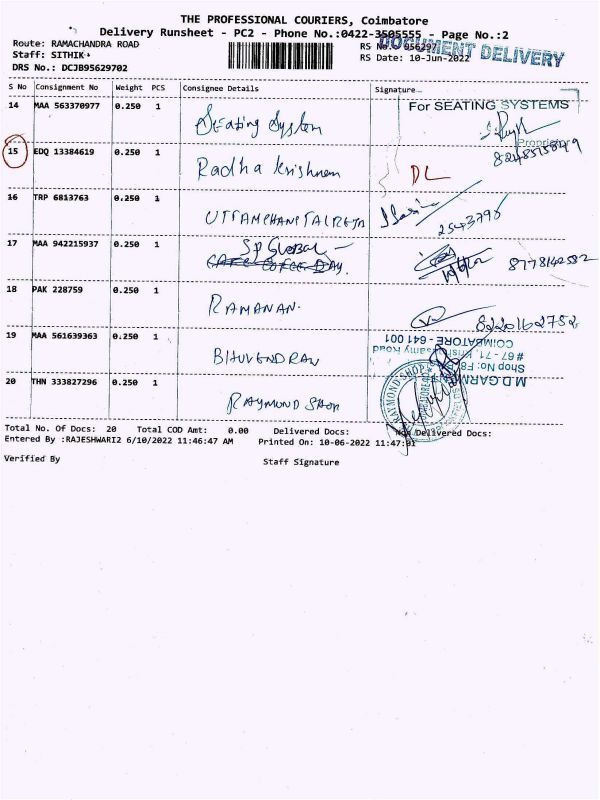 THE PROFESSIONAL COURIERS, Coimbatore
Delivery Runsheet - PC2 - Phone No.:0422-3505555 - Page No.:2
Route: RAMACHANDRA ROAD RS No.: 956297
DOCUMENT DELIVERY
Staff: SITHIK RS Date: 10-Jun-2022
DRS No.: DCJB95629702
S No Consignment No Weight PCS Consignee Details Signature
14 MAA 563370977 0.250 1 Seating System
For SEATING SYSTEMS
Proprietor
15 EDQ 13384619 0.250 1 Radha Krishnan DL
16 TRP 6813763 0.250 1 UTTAMCHAND TALREJA
2543798
17 MAA 942215937 0.250 1 SP GLOBAL
CAFE COFEE DAY.
8778142582
18 PAK 228759 0.250 1 RAMANAN.
8220162752
19 MAA 561639363 0.250 1 BHUVENDRAN
M.D.GARMENTS
Shop No: F8,
# 67 - 71, Krishnasamy Road
COIMBATORE - 641 001
20 THN 333827296 0.250 1 RAYMOND SHOP
RAYMOND SHOP
Total No. Of Docs: 20 Total COD Amt: 0.00 Delivered Docs: Non Delivered Docs:
Entered By :RAJESHWARI2 6/10/2022 11:46:47 AM Printed On: 10-06-2022 11:47:01
Verified By Staff Signature